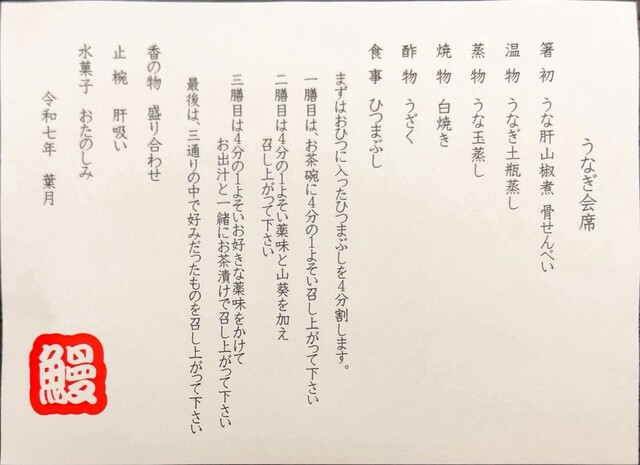 うなぎ会席
箸初 うな肝山椒煮 骨せんべい
温物 うなぎ土瓶蒸し
蒸物 うな玉蒸し
焼物 白焼き
酢物 うざく
食事 ひつまぶし
まずはおひつに入ったひつまぶしを4分割します。
一膳目は、お茶碗に4分の1よそい召し上がって下さい
二膳目は4分の1よそい薬味と山葵を加え
召し上がって下さい
三膳目は4分の1よそいお好きな薬味をかけて
お出汁と一緒にお茶漬けで召し上がって下さい
最後は、三通りの中で好みだったものを召し上がって下さい
香の物 盛り合わせ
止椀 肝吸い
水菓子 おたのしみ
令和七年 葉月
鰻